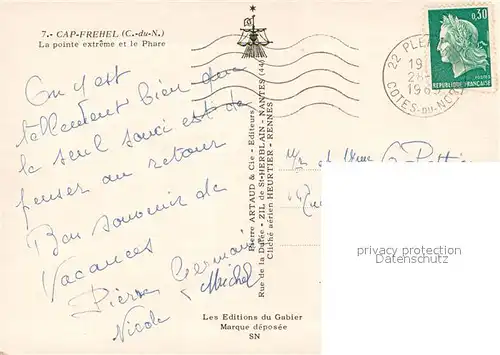 7.- CAP-FREHEL (C.-du-N.)
La pointe extrême et le Phare
On y est
tellement bien que
le seul souci est de
penser au retour
Bon souvenir de
Vacances
Pierre Germaine
Michel
Nicole
Pierre ARTAUD & Cie - Editeurs
Rue de la Dutée - ZIL de St-HERBLAIN - NANTES (44)
Cliché aérien HEURTIER - RENNES
Les Editions du Gabier
Marque déposée
SN
0,30
POSTES
REPUBLIQUE FRANÇAISE
22
COTES-DU-NORD
M/r et Mme
privacy protection
Datenschutz